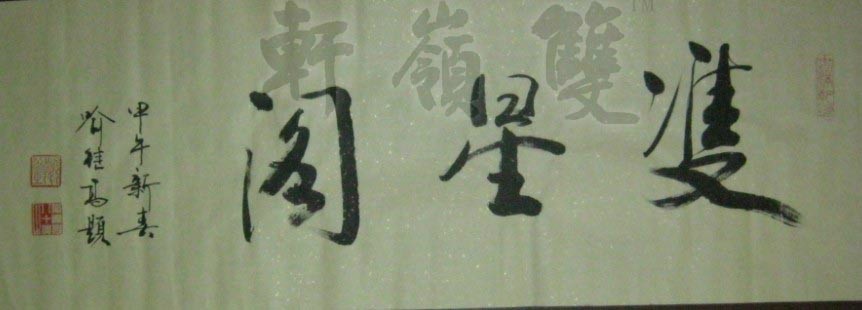 雙嶺軒
TM
雙星閣
甲午新春
喻继高題